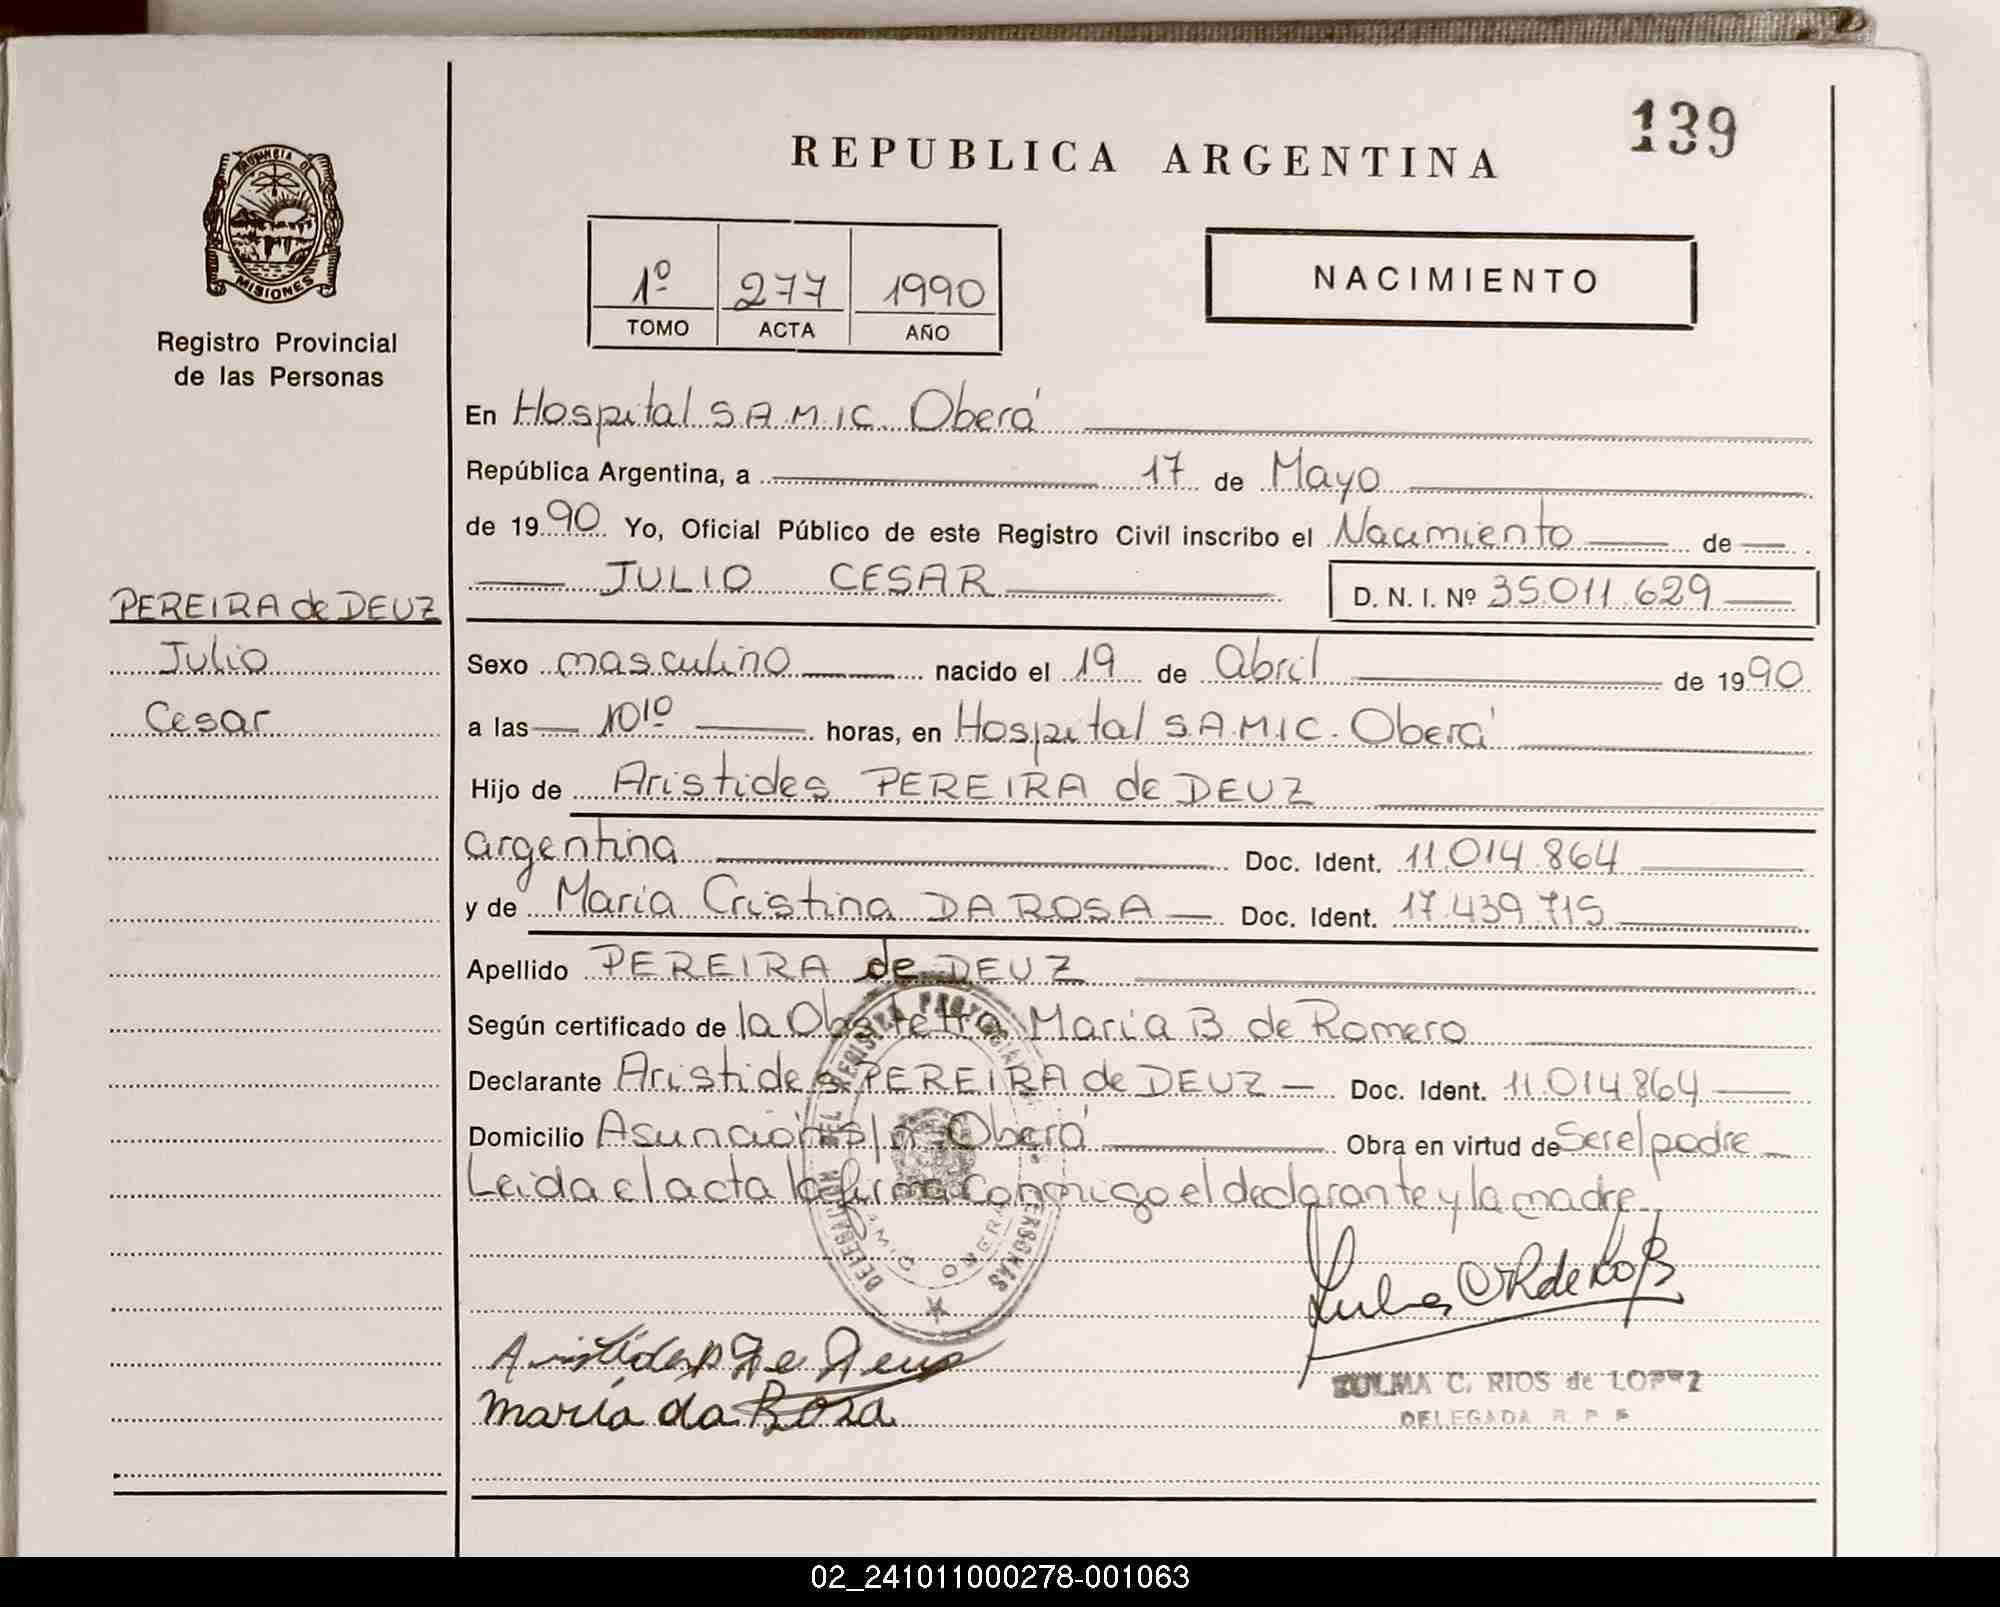 139
REPUBLICA ARGENTINA
PROVINCIA DE
MISIONES
Registro Provincial
de las Personas
1º 277 1990
TOMO ACTA AÑO
NACIMIENTO
En Hospital S.A.M.I.C. Oberá
República Argentina, a 17 de Mayo
de 1990 Yo, Oficial Público de este Registro Civil inscribo el Nacimiento de
JULIO CESAR D. N. I. Nº 35.011.629
PEREIRA de DEUZ
Julio
Cesar
Sexo masculino nacido el 19 de Abril de 1990
a las 10¹⁰ horas, en Hospital S.A.M.I.C. Oberá
Hijo de Aristides PEREIRA de DEUZ
argentina Doc. Ident. 11.014.864
y de Maria Cristina DA ROSA Doc. Ident. 17.439.715
Apellido PEREIRA de DEUZ
Según certificado de la Obstetra Maria B. de Romero
Declarante Aristides PEREIRA de DEUZ Doc. Ident. 11.014.864
Domicilio Asunción s/n Oberá Obra en virtud de Ser el padre
Leida el acta la firma conmigo el declarante y la madre
Aristides P de Deus
maría da Rosa
ZULMA C. RIOS de LOPEZ
DELEGADA R. P. P.
02_241011000278-001063